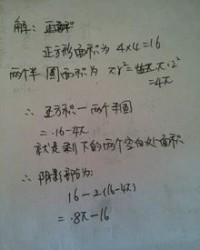 解:
正方形面积为 4×4=16
两个半圆面积为 πr²=π·2²
=4π
∴ 正方积一两个半圆
=16-4π
就是剩下的两个空白处面积
∴ 阴影部为:
16-2(16-4π)
=8π-16